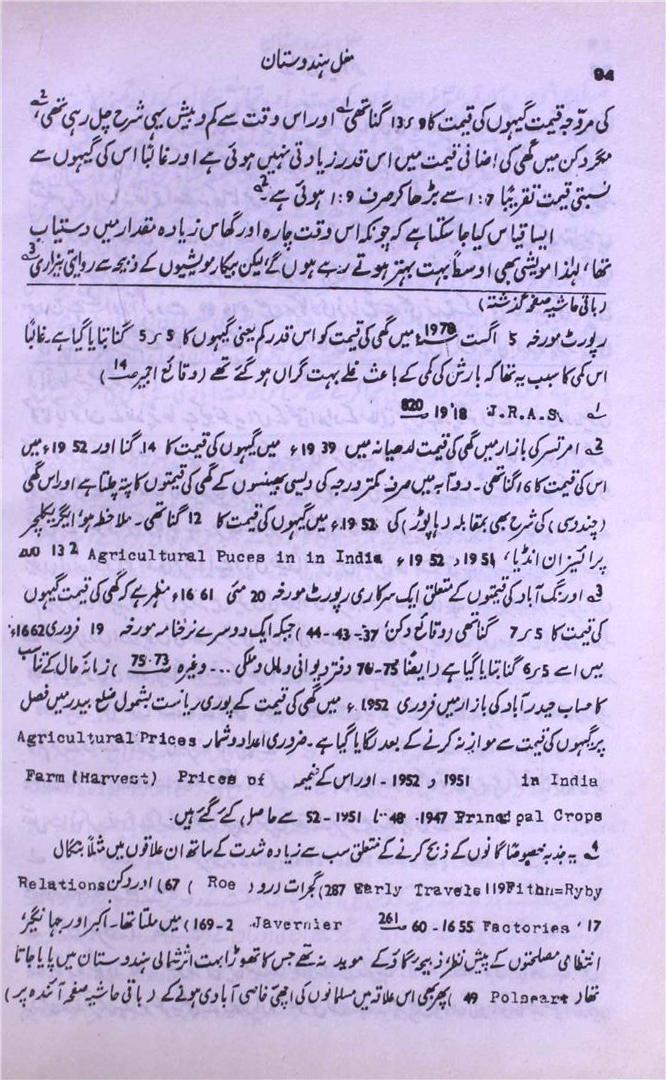 94
مغل ہندوستان
کی مروّجہ قیمت گیہوں کی قیمت کا 9ء13 گنا تھی 1؎ اور اس وقت سے کم و بیش یہی شرح چل رہی تھی، 2؎
مگر دکن میں گھی کی اضافی قیمت میں اس قدر زیادتی نہیں ہوئی ہے اور غالباً اس کی گیہوں سے
نسبتی قیمت تقریباً 1:7 سے بڑھا کر صرف 1:9 ہوئی ہے۔ 2؎
ایسا قیاس کیا جا سکتا ہے کہ چونکہ اس وقت چارہ اور گھاس زیادہ مقدار میں دستیاب
تھا، لہٰذا مویشی بھی اوسطاً بہت بہتر ہوتے رہے ہوں گے، لیکن بیکار مویشیوں کے ذبیحہ سے روایتی بیزاری 3؎
(باقی حاشیہ صفحہ گذشتہ)
رپورٹ مورخہ 5 اگست 1678ء میں گھی کی قیمت کو اس قدر کم یعنی گیہوں کا 5ر5 گنا بتایا گیا ہے۔ غالباً
اس کمی کا سبب یہ تھا کہ بارش کی کمی کے باعث غلے بہت گراں ہو گئے تھے (وقائع اجمیر ص 14)
1؎ J.R.A.S. 19'18 ص 820
2؎ امرتسر کی بازار میں گھی کی قیمت لدھیانہ میں 39 19ء میں گیہوں کی قیمت کا 14 گنا اور 52 19ء میں
اس کی قیمت کا 16 گنا تھی۔ دوآبہ میں صرف کمتر درجہ کی دیسی بھینسوں کے گھی کی قیمتوں کا پتہ چلتا ہے اور اس گھی
(چندوسی) کی شرح بھی بمقابلہ (ہاپوڑ) کی 52-19ء میں گیہوں کی قیمت کا 12 گنا تھی۔ ملاحظہ ہو، ایگریکلچر
پرائیزان انڈیا، 1951ر 52 19ء Agricultural Puces in in India 132 ص
3؎ اورنگ آباد کی قیمتوں کے متعلق ایک سرکاری رپورٹ مورخہ 20 مئی 61 16ء مظہر ہے کہ گھی کی قیمت گیہوں
کی قیمت کا 5ر7 گنا تھی (وقائع دکن، 37-43-44) جبکہ ایک دوسرے نرخنامہ مورخہ 19 فروری 1662ء
میں اسے 5ر6 گنا بتایا گیا ہے (ایضاً 75-76 دفتر دیوانی و مال و ملکی ... وغیرہ 73-75) زمانہ حال کے تناسب
کا حساب حیدرآباد کی بازار میں فروری 1952ء میں گھی کی قیمت کے پوری ریاست بشمول ضلع بیدر میں فصل
پر گیہوں کی قیمت سے موازنہ کرنے کے بعد لگایا گیا ہے۔ ضروری اعداد و شمار Agricultural Prices
in India 1951 و 1952۔ اور اس کے ضمیمہ Farm (Harvest) Prices of
Principal Crops 1947-48 تا 1951-52 سے حاصل کئے گئے ہیں۔
4؎ یہ جذبہ خصوصاً گایوں کے ذبح کرنے کے متعلق سب سے زیادہ شدت کے ساتھ ان علاقوں میں مثلاً بنگال
Early Travels 119 Fithn=Ryby 287) گجرات (رو Roe 67) اور دکن Relations
Factories '17 1655-60 ص 261 Javernier 169-2) میں ملتا تھا۔ اکبر اور جہانگیر،
انتظامی مصلحتوں کے پیش نظر، ذبیحہ گاؤ کے موید نہ تھے جس کا تھوڑا بہت اثر شمالی ہندوستان میں پایا جاتا
تھا (Polseart 49) پھر بھی اس علاقہ میں مسلمانوں کی اچھی خاصی آبادی ہونے کے (باقی حاشیہ صفحہ آئندہ پر)